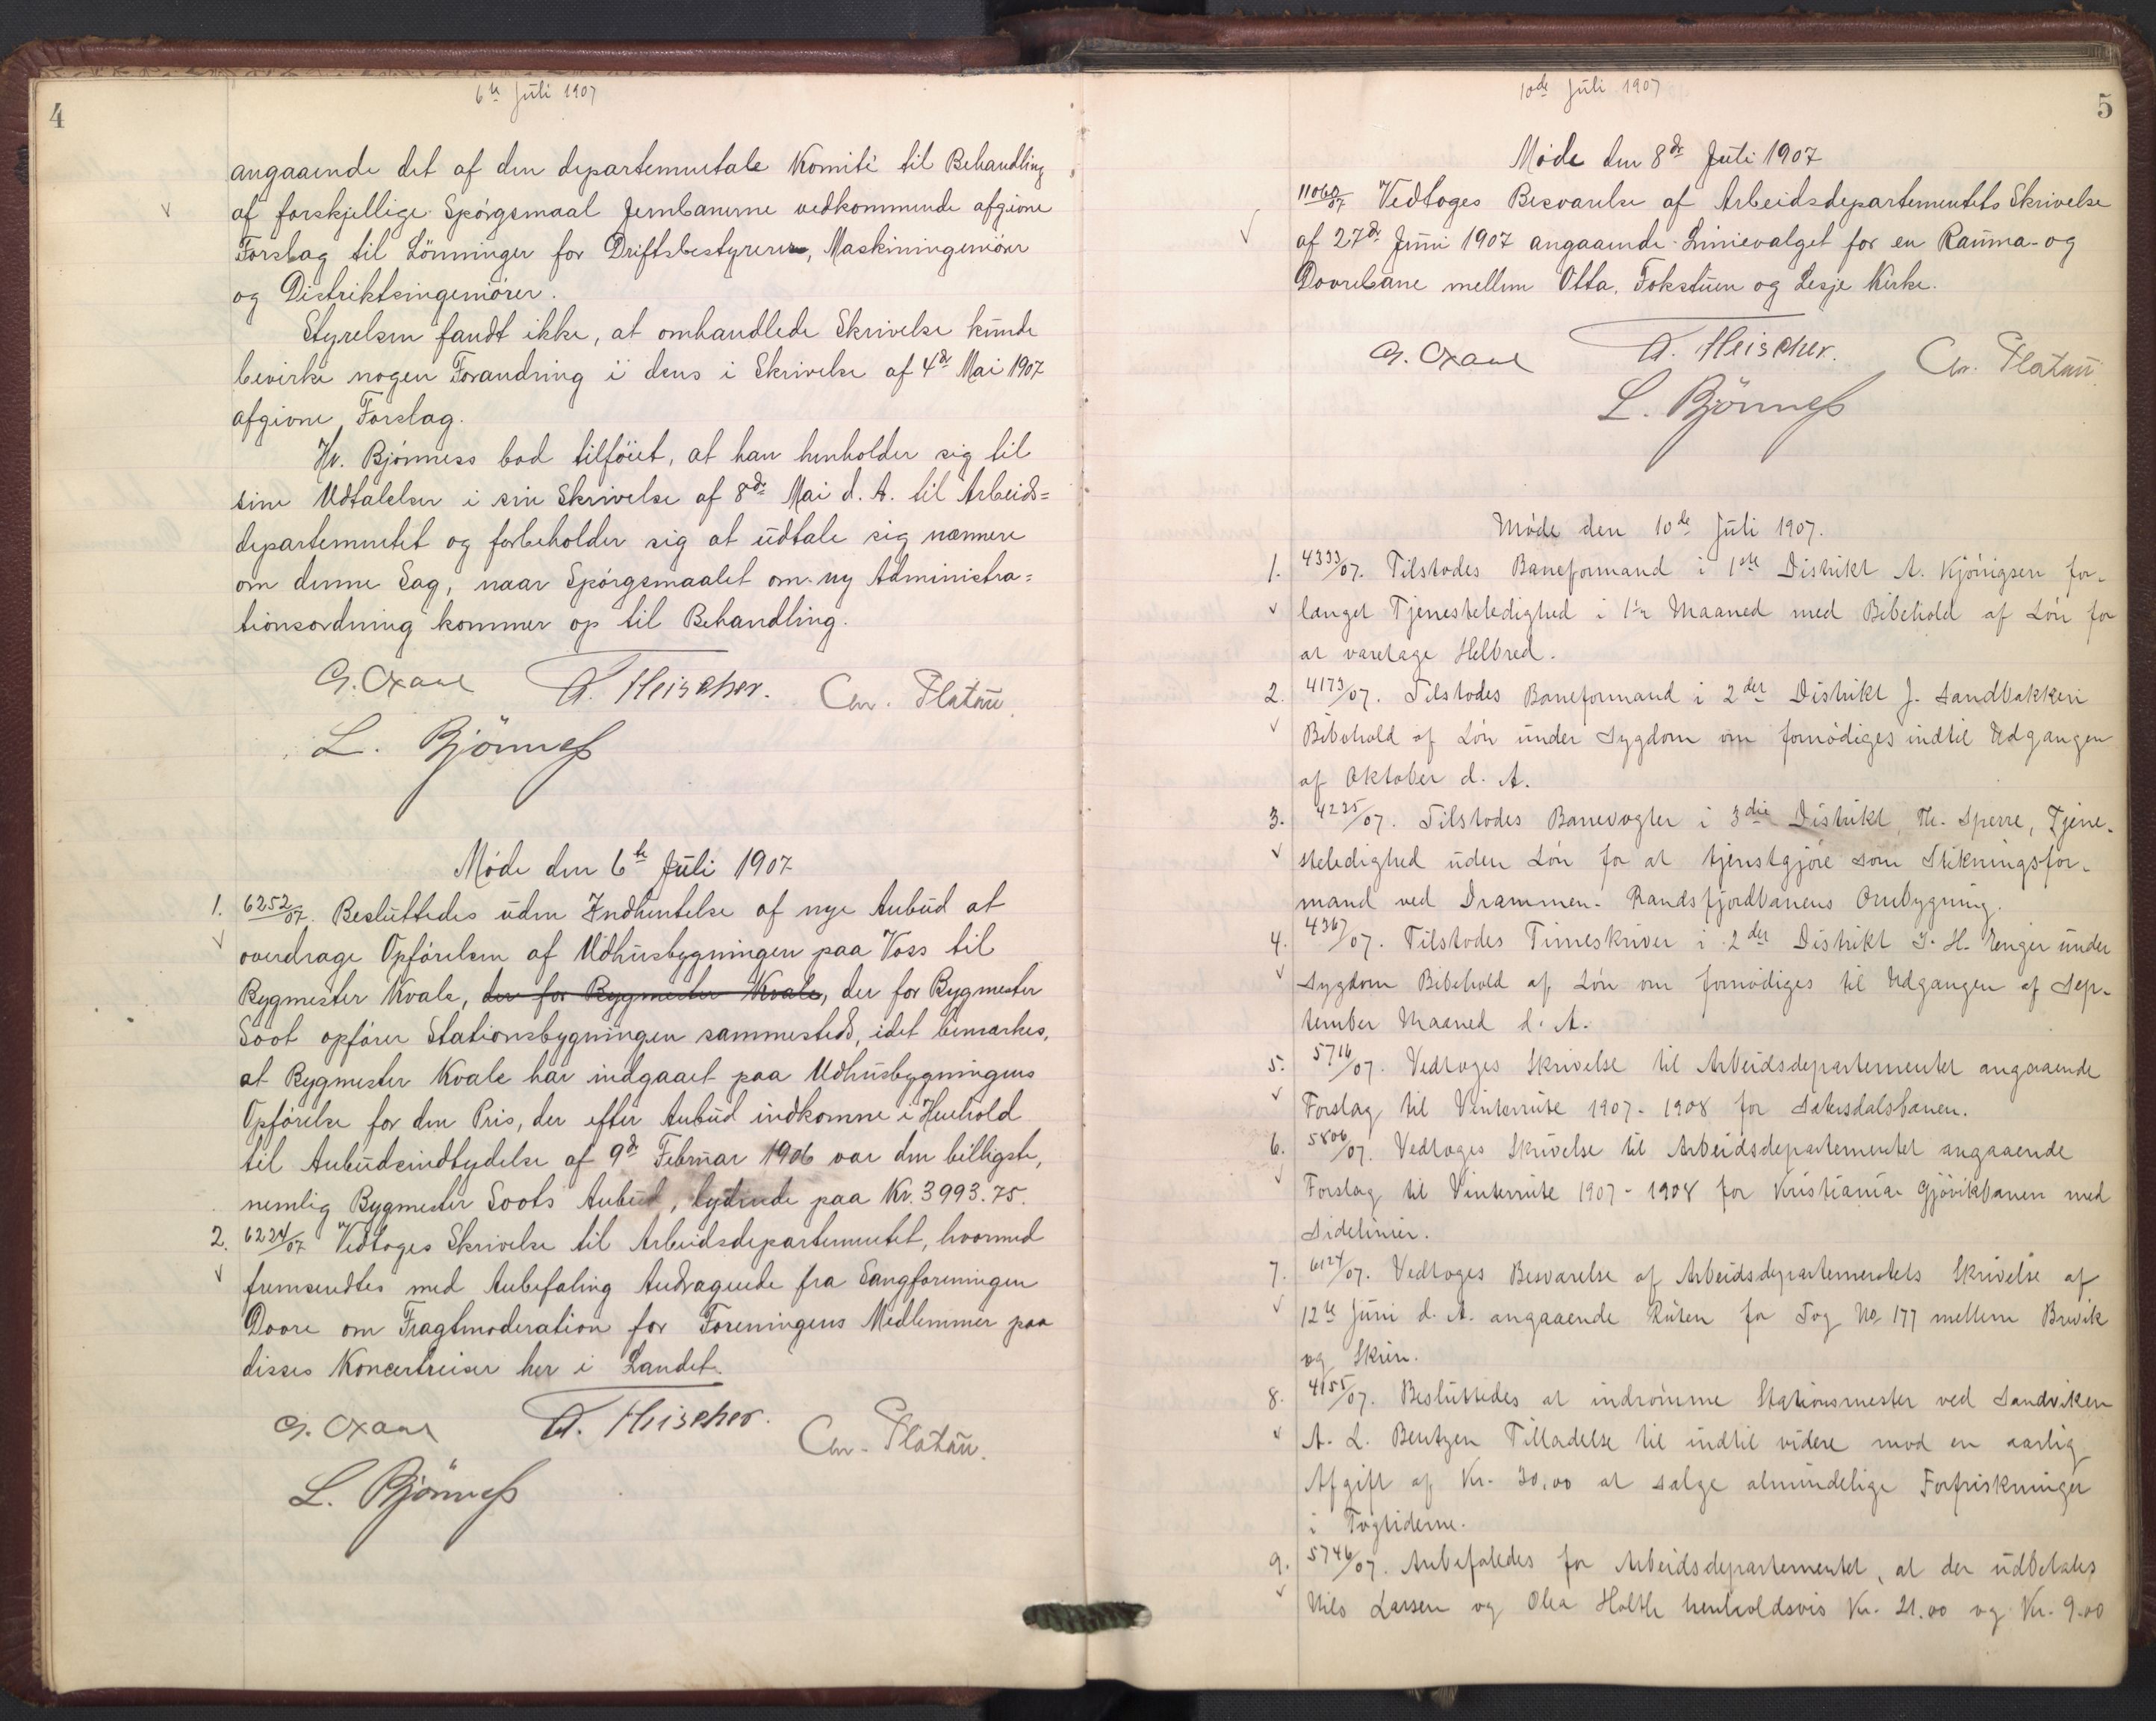 4
6te Juli 1907
angaaende det af den departementale Komité til Behandling
af forskjellige Spørgsmaal Jernbanerne vedkommende afgivne
Forslag til Lønninger for Driftsbestyrere, Maskiningeniører
og Distriktsingeniører.
Styrelsen fandt ikke, at omhandlede Skrivelse kunde
bevirke nogen Forandring i dens i Skrivelse af 4de Mai 1907
afgivne Forslag.
Hr. Bjønness bad tilføiet, at han henholder sig til
sine Udtalelser i sin Skrivelse af 8de Mai d. A. til Arbeids=
departementet og forbeholder sig at udtale sig nærmere
om denne Sag, naar Spørgsmaalet om ny Administra=
tionsordning kommer op til Behandling.
G. Oxaal A. Fleischer. Chr. Platou
L. Bjönness
Møde den 6te Juli 1907
1. 6252/07. Besluttedes uden Indhentelse af nye Anbud at
overdrage Opførelsen af Udhusbygningen paa Voss til
Bygmester Kvale, der for Bygmester Kvale, der for Bygmester
Soot opfører Stationsbygningen sammesteds, idet bemærkes,
at Bygmester Kvale har indgaaet paa Udhusbygningens
Opførelse for den Pris, der efter Anbud indkomne i Henhold
til Anbudsindbydelse af 9de Februar 1906 var den billigste,
nemlig Bygmester Soots Anbud, lydende paa Kr. 3993.75.
2. 6224/07 Vedtoges Skrivelse til Arbeidsdepartementet, hvormed
fremsendtes med Anbefaling Andragende fra Sangforeningen
Dovre om Fragtmoderation for Foreningens Medlemmer paa
disses Koncertreiser her i Landet.
G. Oxaal A. Fleischer. Chr. Platou.
L. Bjönness
5
10de Juli 1907
Møde den 8de Juli 1907
11060/07 Vedtoges Besvarelse af Arbeidsdepartementets Skrivelse
af 27de Juni 1907 angaaende Linievalget for en Rauma- og
Dovrebane mellem Otta, Fokstuen og Lesje Kirke.
G. Oxaal A. Fleischer. Chr. Platou
L. Bjönness
Møde den 10de Juli 1907.
1. 4333/07. Tilstodes Baneformand i 1ste Distrikt A. Kjønigsen for-
længet Tjenesteledighed i 1 Maaned med Bibehold af Løn for
at varetage Helbred.
2. 4173/07. Tilstodes Baneformand i 2det Distrikt J. Sandbakken
Bibehold af Løn under Sygdom om fornødiges indtil Udgangen
af Oktober d. A.
3. 4235/07. Tilstodes Banevogter i 3die Distrikt, Th. Sperre, Tjene-
steledighed uden Løn for at tjenestgjøre som Stikningsfor-
mand ved Drammen-Randsfjordbanens Ombygning.
4. 4367/07. Tilstodes Timeskriver i 2det Distrikt J. H. Enger under
Sygdom Bibehold af Løn om fornødiges til Udgangen af Sep-
tember Maaned d. A.
5. 5716/07. Vedtoges Skrivelse til Arbeidsdepartementet angaaende
Forslag til Vinterrute 1907-1908 for Sætersdalsbanen.
6. 5806/07. Vedtoges Skrivelse til Arbeidsdepartementet angaaende
Forslag til Vinterrute 1907-1908 for Kristiania-Gjøvikbanen med
Sidelinier.
7. 6124/07. Vedtoges Besvarelse af Arbeidsdepartementets Skrivelse af
12te Juni d. A. angaaende Ruten for Tog No 177 mellem Brevik
og Skien.
8. 4155/07. Besluttedes at indrømme Stationsmester ved Sandviken
A. L. Bentzen Tilladelse til indtil videre mod en aarlig
Afgift af Kr. 30.00 at sælge almindelige Forfriskninger
i Togtiderne.
9. 5746/07. Anbefaledes for Arbeidsdepartementet, at der udbetales
Nils Larsen og Olea Holthe henholdsvis Kr. 21.00 og Kr. 9.00